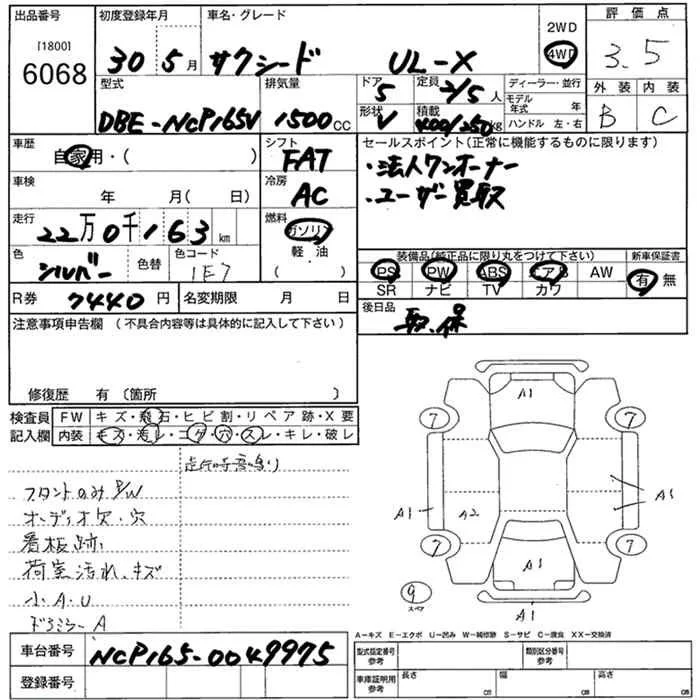 出品番号
[1800]
6068
初度登録年月
30 5月
車名・グレード
サクシード UL-X
2WD
4WD
評価点
3.5
型式
DBE-NCP165V
排気量
1500cc
ドア
5
形状
V
定員
2/5人
積載
400/250kg
ディーラー・並行
モデル年式 年
ハンドル 左・右
外装
B
内装
C
車歴
自家用・( )
シフト
FAT
車検
年 月( 日)
冷房
AC
走行
22万0千163km
燃料
ガソリン
軽・油
( )
色
シルバー
色替
色コード
1E7
R券 7440円
名変期限 月 日
セールスポイント(正常に機能するものに限ります)
・法人ワンオーナー
・ユーザー買取
装備品(純正品に限り丸をつけて下さい)
PS PW ABS エアB AW
SR ナビ TV カワ
新車保証書
有・無
後日品
取、保
注意事項申告欄 (不具合内容等は具体的に記入して下さい)
修復歴 有 〔箇所 〕
検査員記入欄
FW キズ・飛石・ヒビ割・リペア跡・X要
内装 キズ・汚レ・コゲ・穴・スレ・キレ・破レ
走行時異音鳴り
フロントのみP/W
オーディオ欠・穴
看板跡
荷室汚れ、キズ
小A・U
ドアミラーA
A1
7
7
A1
A2
A1
7
7
A1
9
スペア
A1
A-キズ E-エクボ U-凹み W-補修跡 S-サビ C-腐食 XX-交換済
車台番号 NCP165-0049975
登録番号
型式指定番号 参考
類別区分番号 参考
車庫証明用 参考
長さ cm
幅 cm
高さ cm